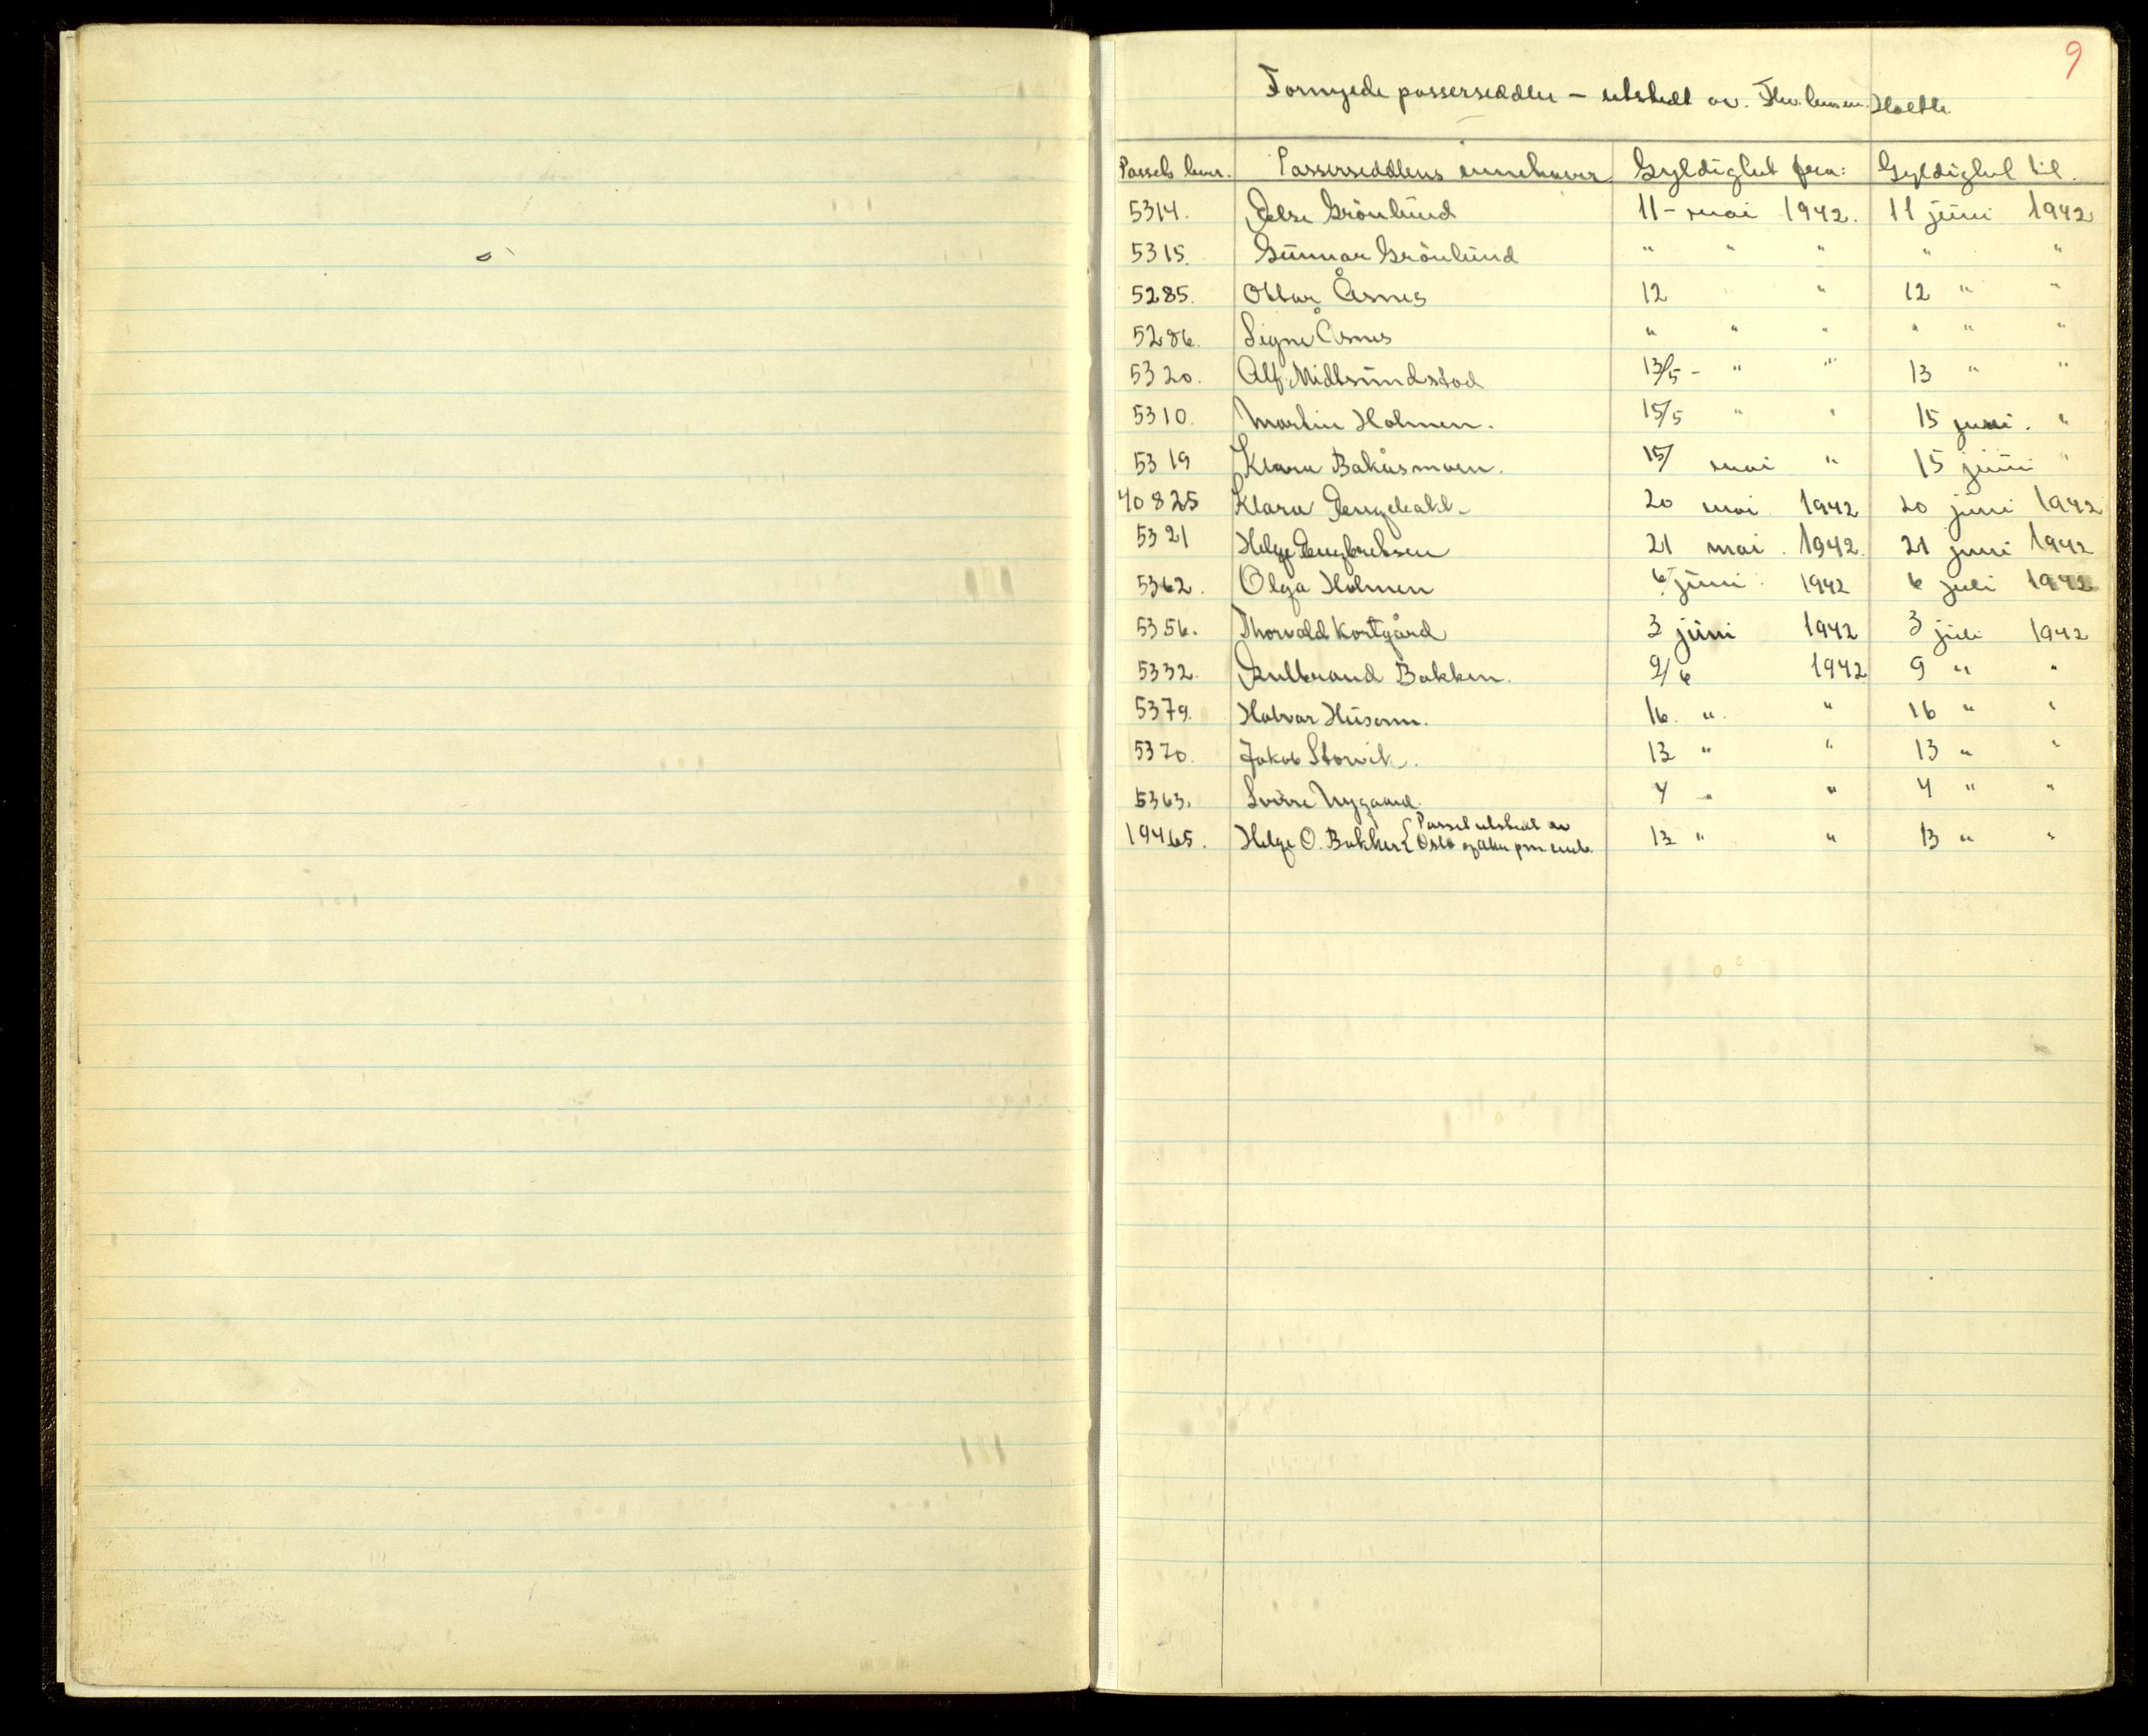 9
Fornyede passersedler – utstedt av.
Gyldighet fra: Gyldighet til.
5314. Else Grönlünd 11 – mai 1942. 11 jüni 1942
5315. Günnar Grönlünd " " " " "
5285. Ottar Åsnes 12 " 12 " "
5286. Signe Åsnes " " " " " "
5320. Alf. Midtsündstad 13/5 – " " 13 " "
5310. Martin Holmen. 15/5 " " 15 juni. "
5319 Klara Bakåsmoen. 15/ mai " 15 jüni "
40825 Klara 20 mai 1942 20 jüni 1942
5321 Helge Engebretsen 21 mai. 1942. 21 juni 1942
5362. Olga Holmen 6 jüni. 1942 6 juli 1942
5356. Thorvald Kortgård 3 jüni 1942 3 jüli 1942
5332. Gulbrand Bakken. 9/6 1942 9 " "
5379. Halvar 16. " " 16 " "
5370. Jakob Storvik. 13 " " 13 " "
5363. Sverre Nygaard. 4 " " 4 " "
19465. Helge O. Bakken { Passet utstedt av 13 " " 13 " "
Oslo